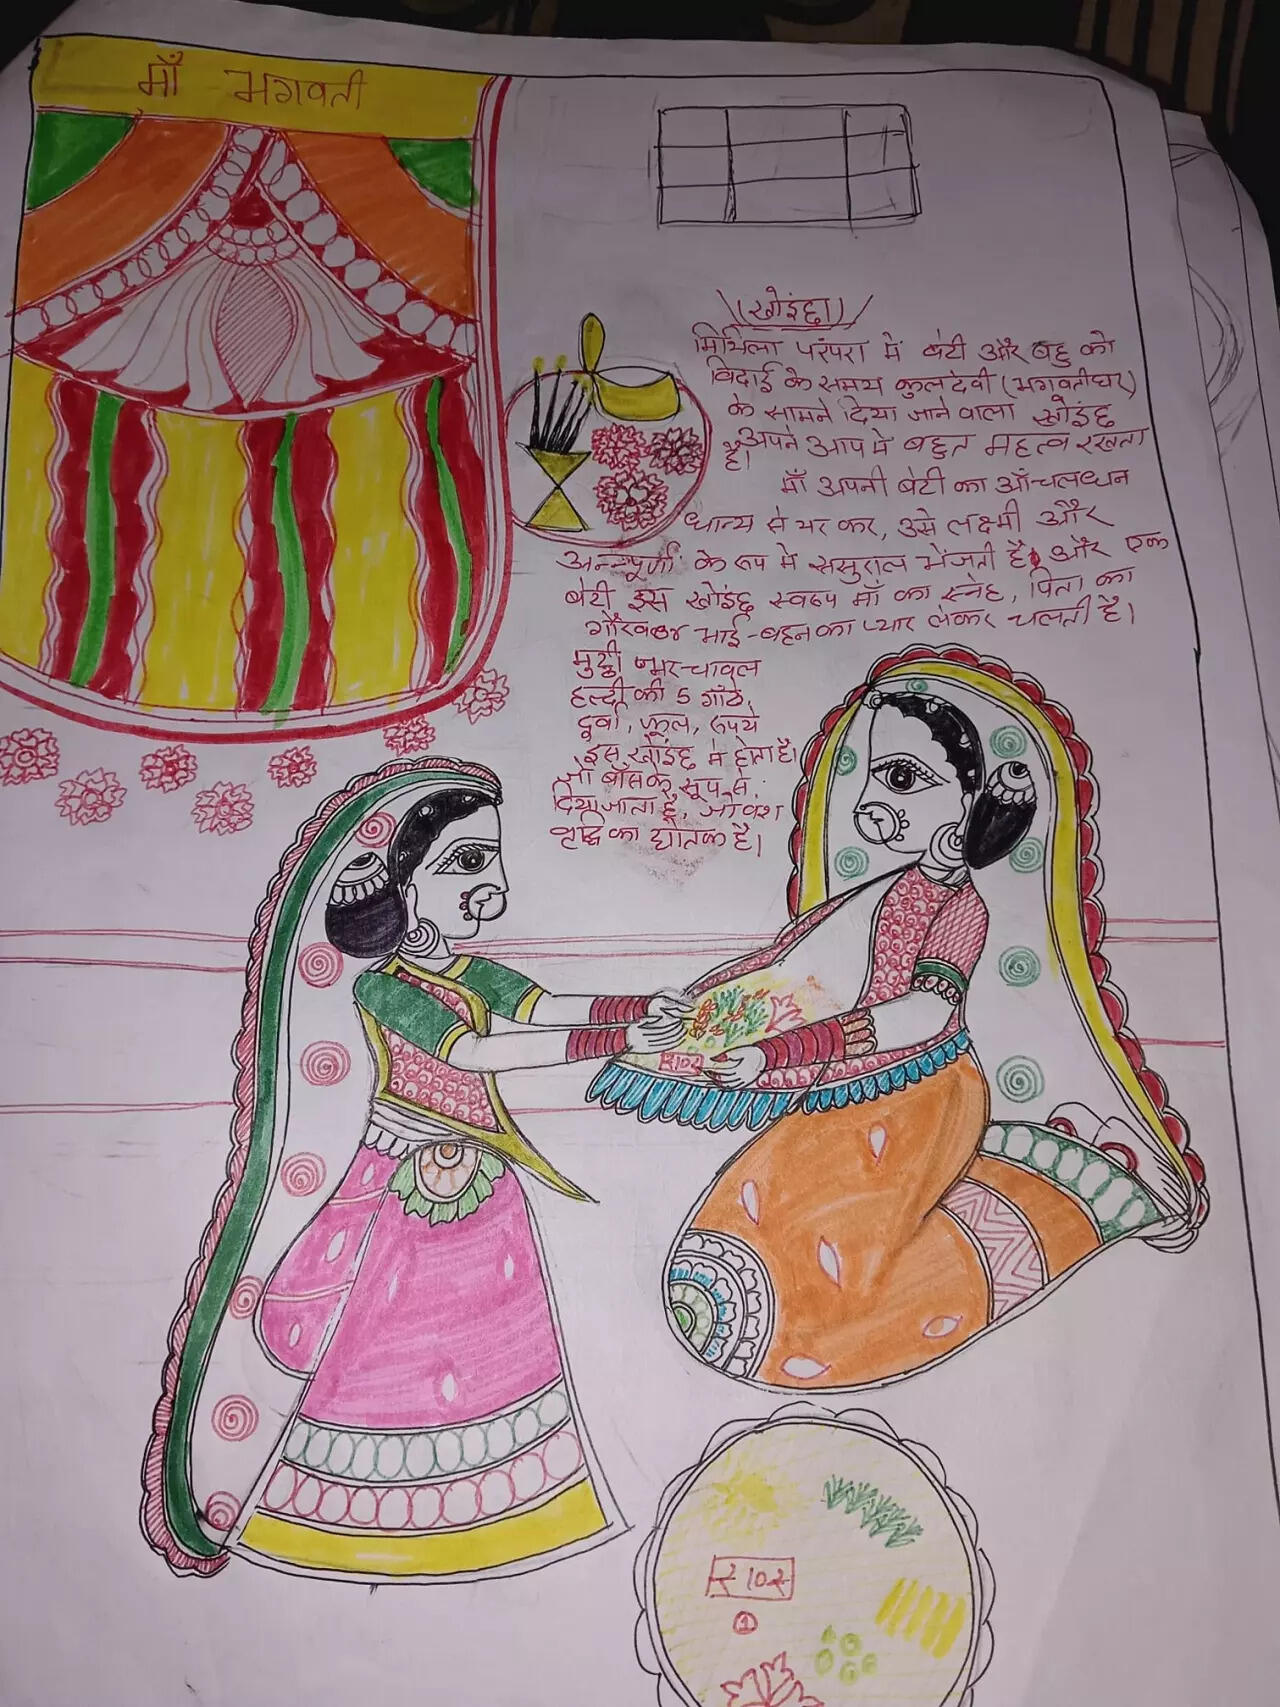 माँ भगवती
(खोइंछा)
मिथिला परंपरा मे बेटी और बहु को
विदाई के समय कुलदेवी (भगवतीघर)
के सामने दिया जाने वाला खोइंछ
अपने आप मे बहुत महत्व रखता
है।
माँ अपनी बेटी का आँचल धन
धान्य से भर कर, उसे लक्ष्मी और
अन्नपूर्णा के रूप मे ससुराल भेजती है। और एक
बेटी इस खोइंछ स्वरूप माँ का स्नेह, पिता का
गौरव भाई-बहन का प्यार लेकर चलती है।
मुट्ठी भर चावल
हल्दी की 5 गाँठ,
दूर्वा, फूल, रूपये
इस खोइंछ मे होता है।
जो बाँस के सूप से
दिया जाता है, जो वंश
वृद्धि का द्योतक है।
₹10₹
₹10₹
1